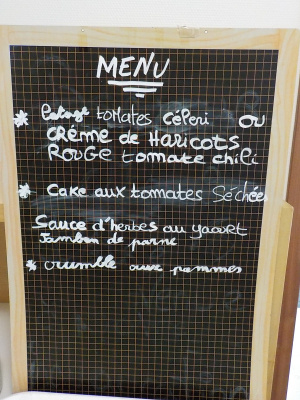 MENU
* Potage tomates céleri OU
CRÉme de HaRicots
ROUGE tomate chili
* Cake aux tomates Séchée
Sauce d'herbes au yaourt
Jambon de parme
* crumble aux pommes